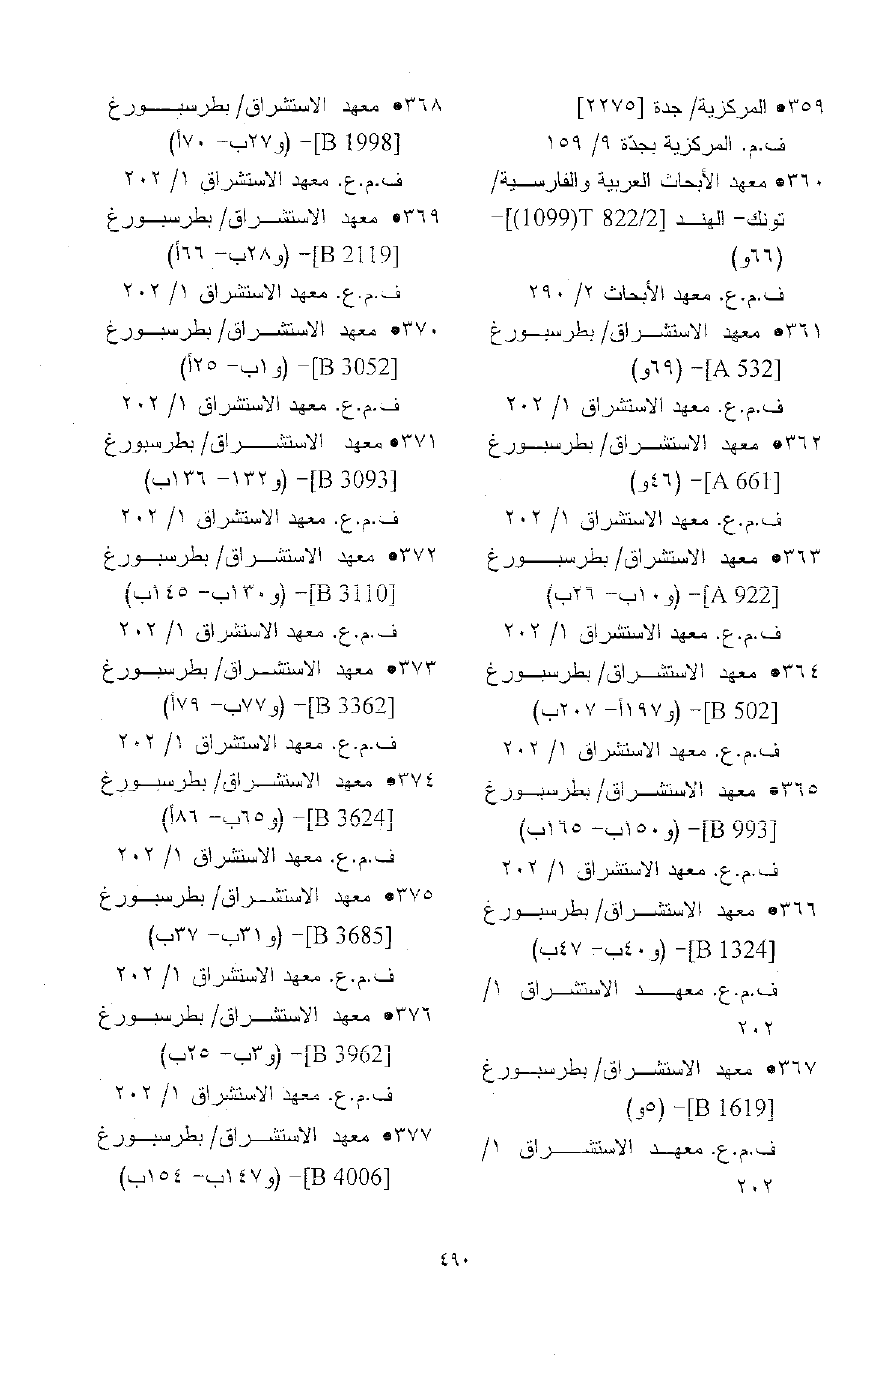 ٣٥٩● المركزية/ جدة [٢٢٧٥]
ف.م. المركزية بجدّة ٩/ ١٥٩
٣٦٠● معهد الأبحاث العربية والفارسية/
تونك- الهند [822/2 T(1099)]-
(٦٦و)
ف.م.ع. معهد الأبحاث ٢/ ٢٩٠
٣٦١● معهد الاستشراق/ بطرسبورغ
[A 532]- (٦٩و)
ف.م.ع. معهد الاستشراق ١/ ٢٠٢
٣٦٢● معهد الاستشراق/ بطرسبورغ
[A 661]- (٤٦و)
ف.م.ع. معهد الاستشراق ١/ ٢٠٢
٣٦٣● معهد الاستشراق/ بطرسبورغ
[A 922]- (و١٠ب- ٢٦ب)
ف.م.ع. معهد الاستشراق ١/ ٢٠٢
٣٦٤● معهد الاستشراق/ بطرسبورغ
[B 502]- (و١٩٧أ- ٢٠٧ب)
ف.م.ع. معهد الاستشراق ١/ ٢٠٢
٣٦٥● معهد الاستشراق/ بطرسبورغ
[B 993]- (و١٥٠ب- ١٦٥ب)
ف.م.ع. معهد الاستشراق ١/ ٢٠٢
٣٦٦● معهد الاستشراق/ بطرسبورغ
[B 1324]- (و٤٠ب- ٤٧ب)
ف.م.ع. معهد الاستشراق ١/
٢٠٢
٣٦٧● معهد الاستشراق/ بطرسبورغ
[B 1619]- (٥و)
ف.م.ع. معهد الاستشراق ١/
٢٠٢
٣٦٨● معهد الاستشراق/ بطرسبورغ
[B 1998]- (و٢٧ب- ٧٠أ)
ف.م.ع. معهد الاستشراق ١/ ٢٠٢
٣٦٩● معهد الاستشراق/ بطرسبورغ
[B 2119]- (و٢٨ب- ٦٦أ)
ف.م.ع. معهد الاستشراق ١/ ٢٠٢
٣٧٠● معهد الاستشراق/ بطرسبورغ
[B 3052]- (و١ب- ٢٥أ)
ف.م.ع. معهد الاستشراق ١/ ٢٠٢
٣٧١● معهد الاستشراق/ بطرسبورغ
[B 3093]- (و١٣٢- ١٣٦ب)
ف.م.ع. معهد الاستشراق ١/ ٢٠٢
٣٧٢● معهد الاستشراق/ بطرسبورغ
[B 3110]- (و١٣٠ب- ١٤٥ب)
ف.م.ع. معهد الاستشراق ١/ ٢٠٢
٣٧٣● معهد الاستشراق/ بطرسبورغ
[B 3362]- (و٧٧ب- ٧٩أ)
ف.م.ع. معهد الاستشراق ١/ ٢٠٢
٣٧٤● معهد الاستشراق/ بطرسبورغ
[B 3624]- (و٦٥ب- ٨٦أ)
ف.م.ع. معهد الاستشراق ١/ ٢٠٢
٣٧٥● معهد الاستشراق/ بطرسبورغ
[B 3685]- (و٣١ب- ٣٧ب)
ف.م.ع. معهد الاستشراق ١/ ٢٠٢
٣٧٦● معهد الاستشراق/ بطرسبورغ
[B 3962]- (و٣ب- ٢٥ب)
ف.م.ع. معهد الاستشراق ١/ ٢٠٢
٣٧٧● معهد الاستشراق/ بطرسبورغ
[B 4006]- (و١٤٧ب- ١٥٤ب)
٤٩٠